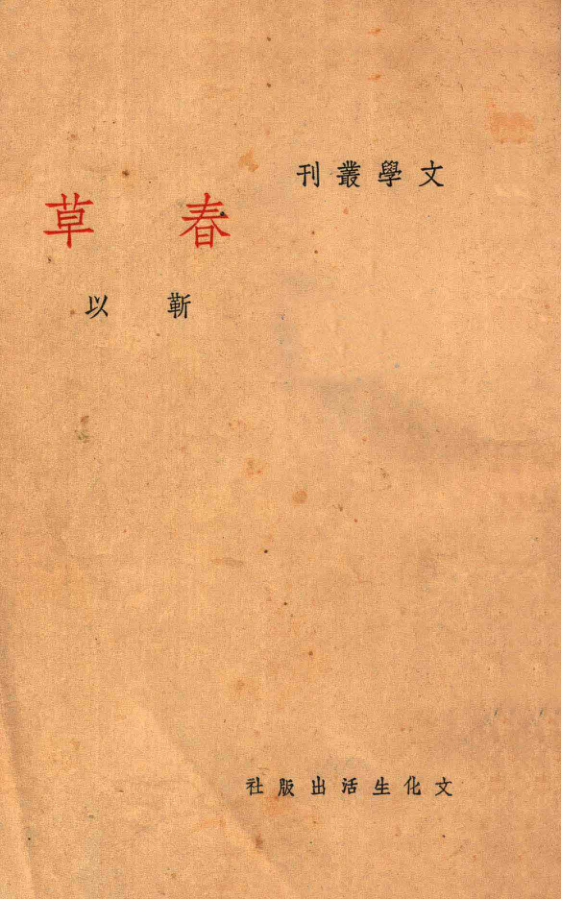 文學叢刊
春草
靳以
文化生活出版社